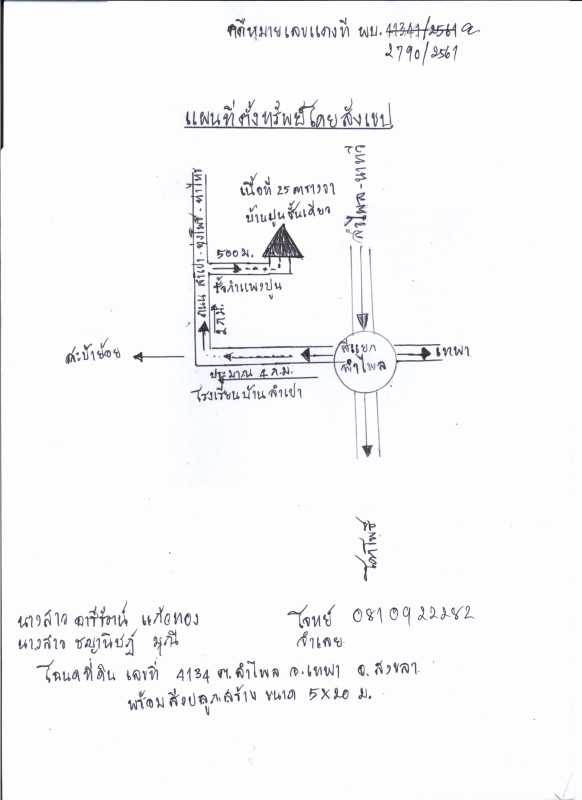 คดีหมายเลขแดงที่ ผบ. 41341/2561
2790/2561
แผนที่ตั้งทรัพย์โดยสังเขป
ลำไพล-นาทวี
เนื้อที่ 25 ตารางวา
บ้านปูนชั้นเดียว
ถนน ลำเปา-ทุ่งโพธิ์-ท่าไทร
500 ม.
รั้วกำแพงปูน
2 ก.ม.
สะบ้าย้อย
สี่แยก
ลำไพล
เทพา
ประมาณ 4 ก.ม.
โรงเรียนบ้านลำเปา
โคกโพธิ์
นางสาว อารีรัตน์ แก้วทอง โจทย์ 0810922282
นางสาว ชญานิษฎ์ มุณี จำเลย
โฉนดที่ดิน เลขที่ 4134 ต.ลำไพล อ.เทพา จ.สงขลา
พร้อมสิ่งปลูกสร้าง ขนาด 5x20 ม.